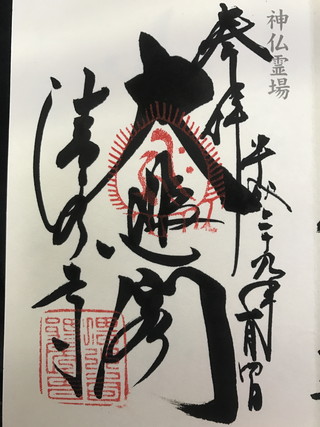 神仏霊場
奉拝
平成二十九年一月四日
大悲閣
清水寺